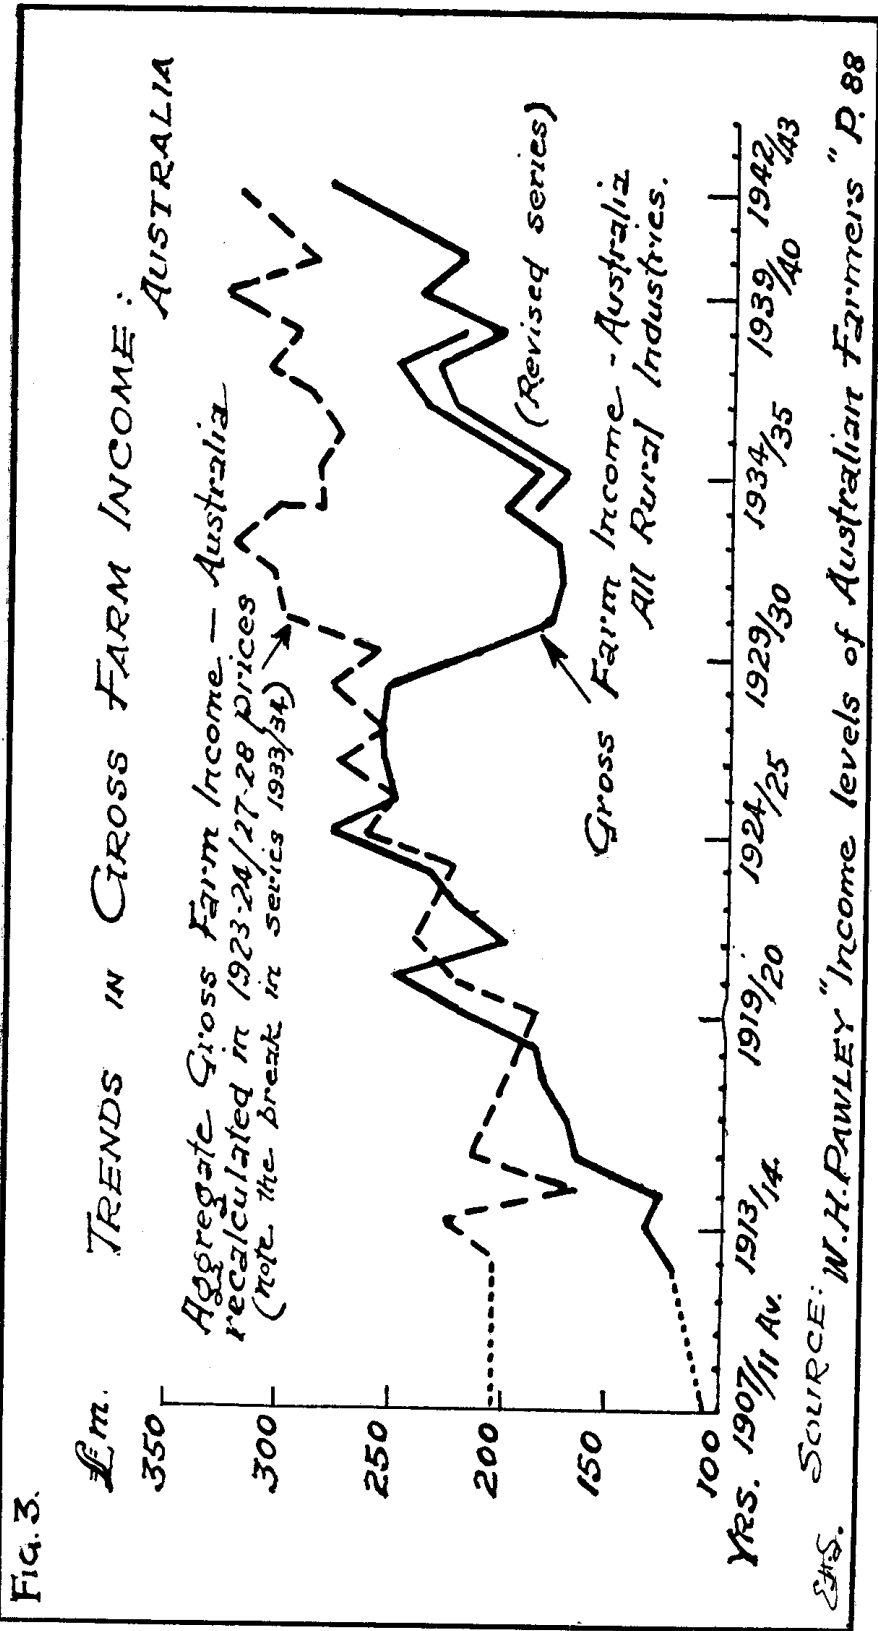 FIG. 3.
TRENDS IN GROSS FARM INCOME:
AUSTRALIA
£m.
350
300
250
200
150
100
Aggregate Gross Farm Income — Australia
recalculated in 1923-24/27-28 prices
(note the break in series 1933/34)
(Revised series)
Gross Farm Income - Australia
All Rural Industries.
YRS. 1907/11 Av. 1913/14. 1919/20 1924/25 1929/30 1934/35 1939/40 1942/43
SOURCE: W.H. PAWLEY "Income levels of Australian Farmers" P. 88